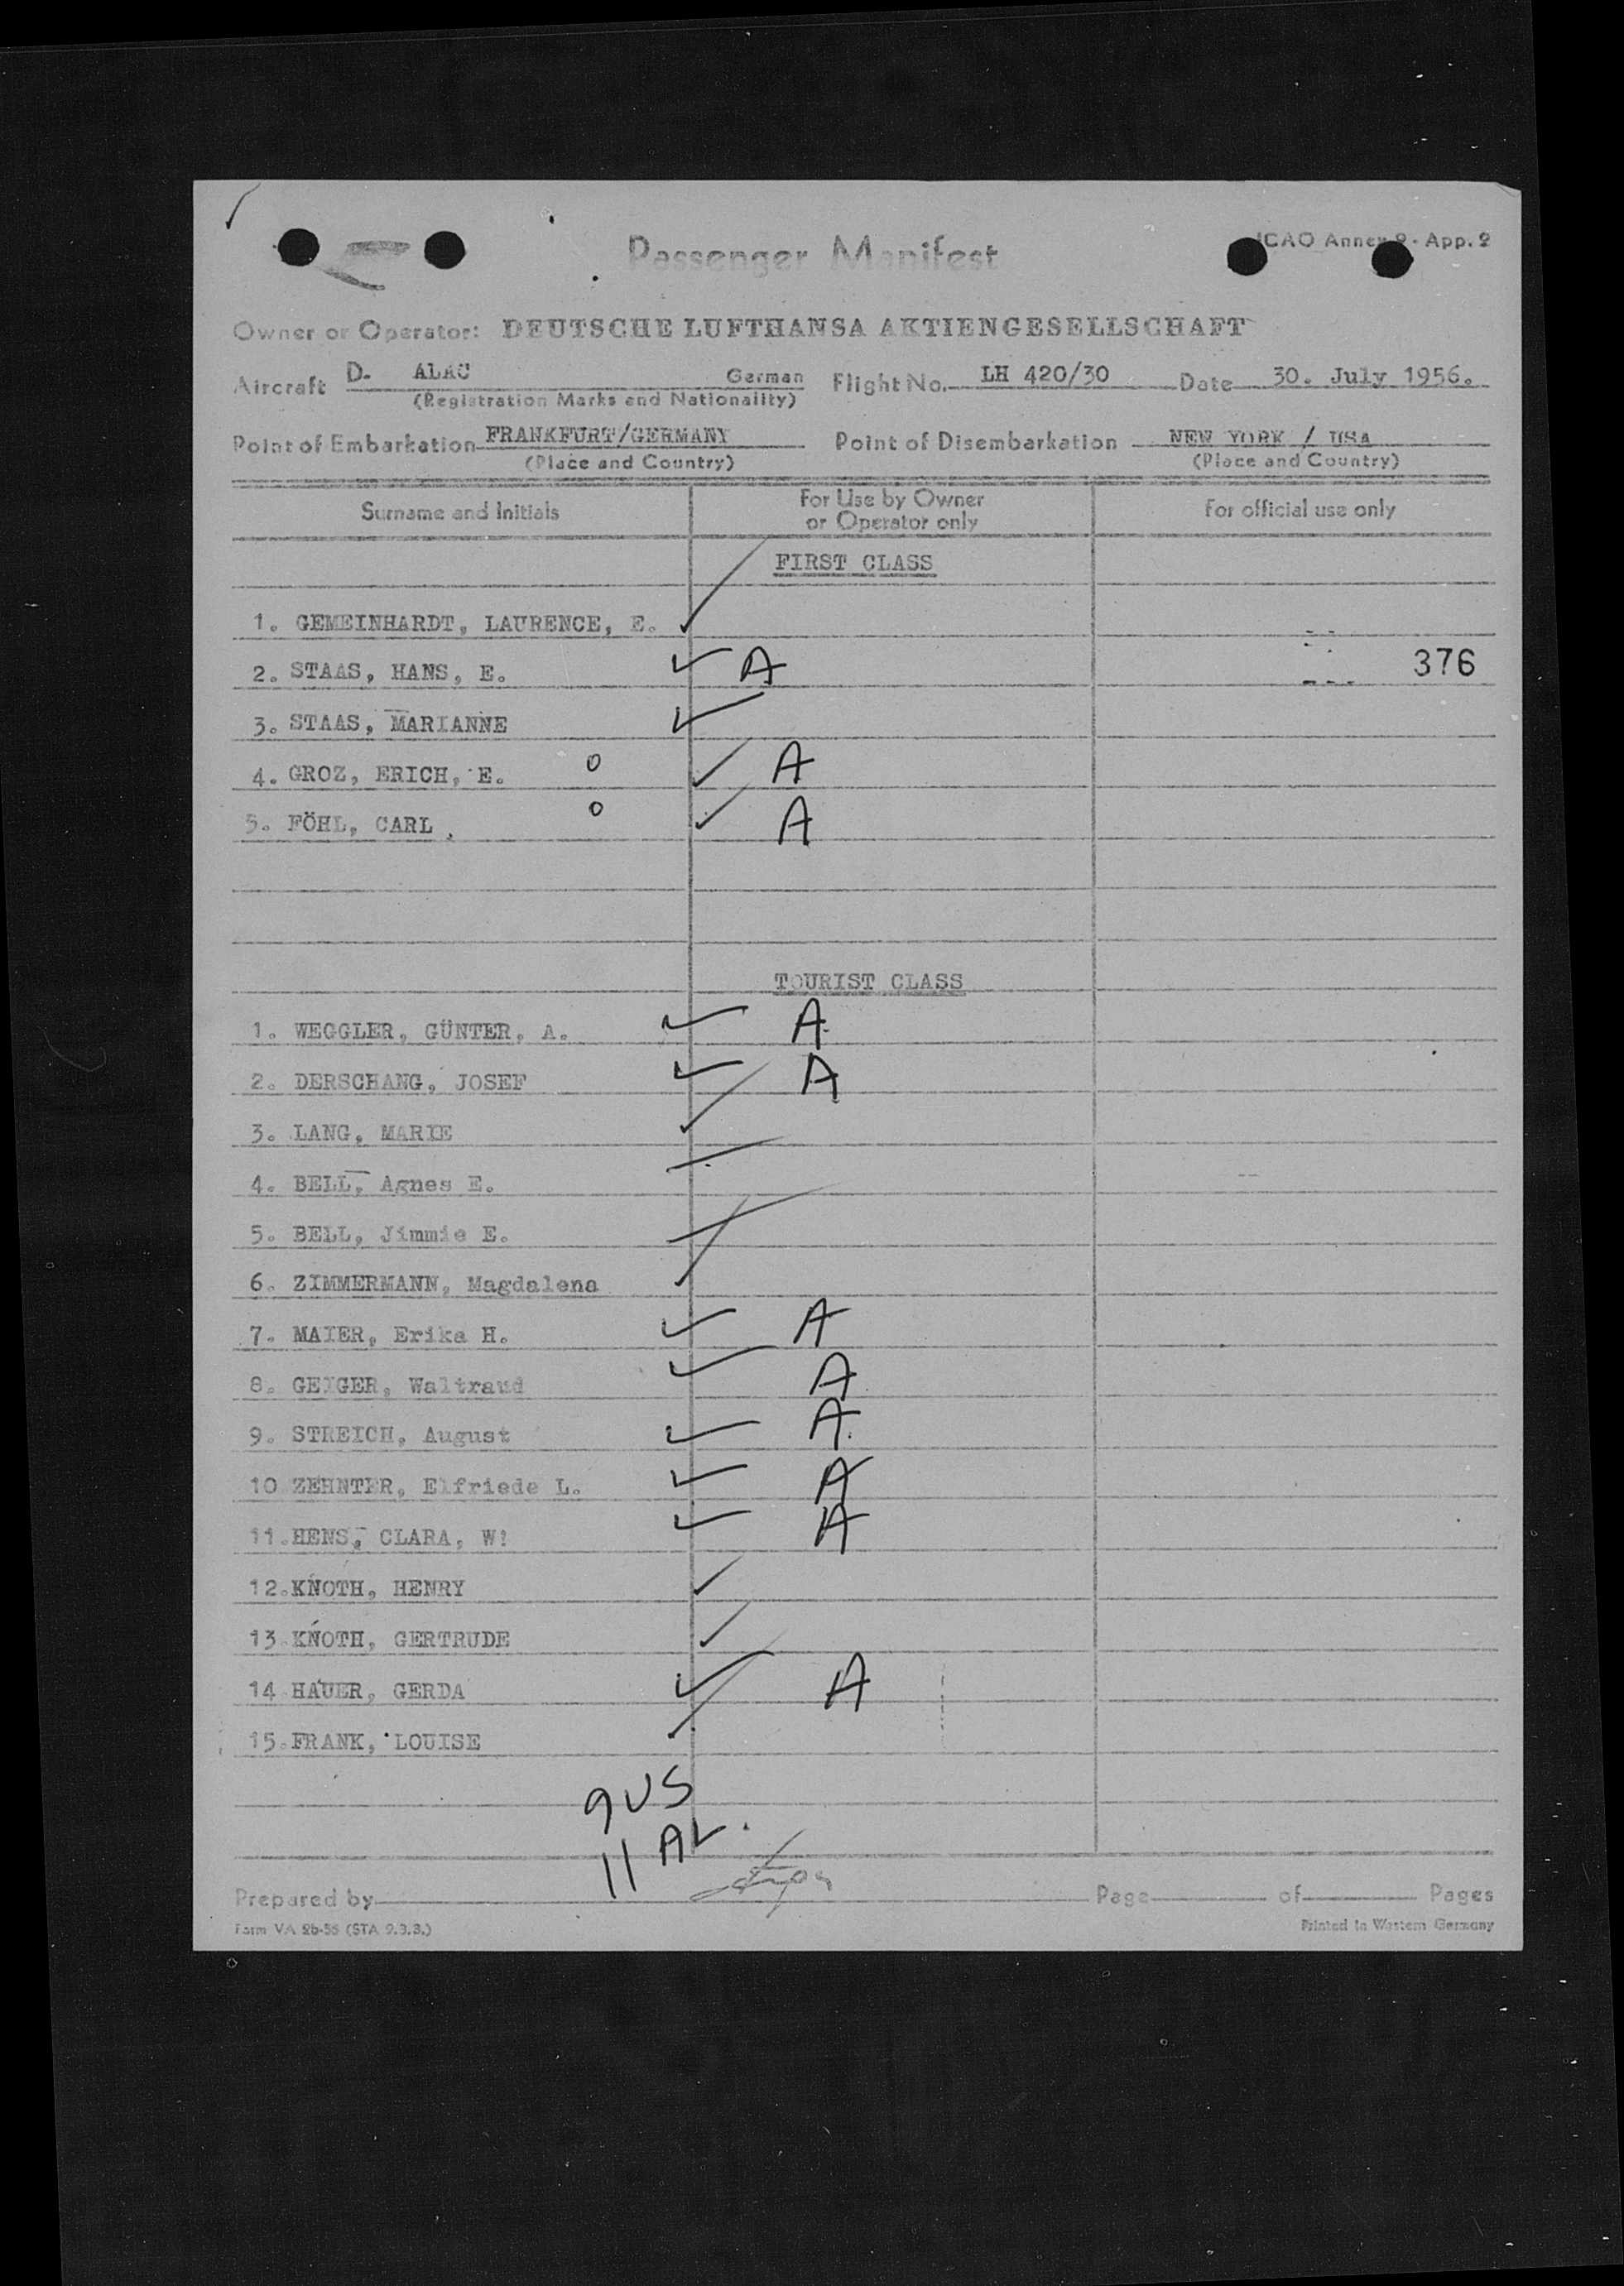 Passenger Manifest
ICAO Annex 9 - App. 2
Owner or Operator: DEUTSCHE LUFTHANSA AKTIENGESELLSCHAFT
Aircraft D- ALAC German Flight No. LH 420/30 Date 30. July 1956.
(Registration Marks and Nationality)
Point of Embarkation FRANKFURT/GERMANY Point of Disembarkation NEW YORK / USA
(Place and Country) (Place and Country)
Surname and Initials For Use by Owner or Operator only For official use only
FIRST CLASS
1. GEMEINHARDT, LAURENCE, E.
2. STAAS, HANS, E. A 376
3. STAAS, MARIANNE
4. GROZ, ERICH, E. o A
5. FÖHL, CARL, o A
TOURIST CLASS
1. WEGGLER, GÜNTER, A. A
2. DERSCHANG, JOSEF A
3. LANG, MARIE
4. BELL, Agnes E.
5. BELL, Jimmie E.
6. ZIMMERMANN, Magdalena
7. MAIER, Erika H. A
8. GEIGER, Waltraud A
9. STREICH, August A
10 ZEHNTER, Elfriede L. A
11. HENS, CLARA, W! A
12. KNOTH, HENRY
13. KNOTH, GERTRUDE
14 HAUER, GERDA A
15. FRANK, LOUISE
9 US
11 AL.
Prepared by Page of Pages
Form VA 2b-56 (STA 9.3.3.) Printed in Western Germany